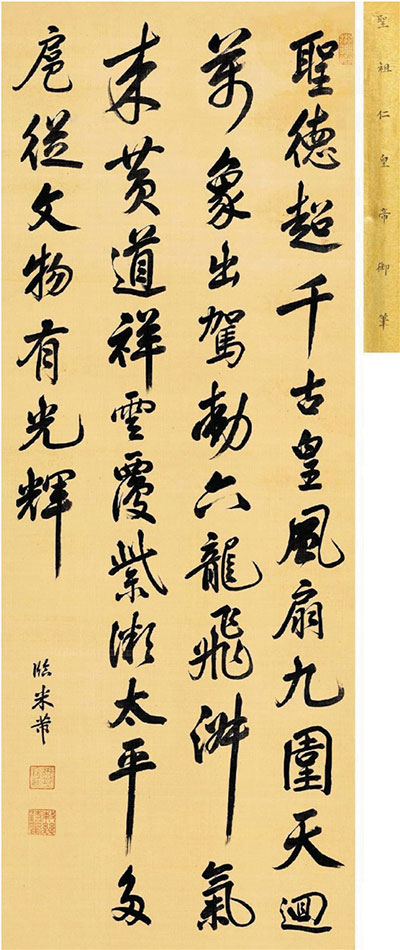 聖祖仁皇帝御筆
聖德超千古皇風扇九圍天迴
萬象出駕動六龍飛淑氣
来黃道祥雲覆紫微太平多
扈從文物有光輝
臨米芾